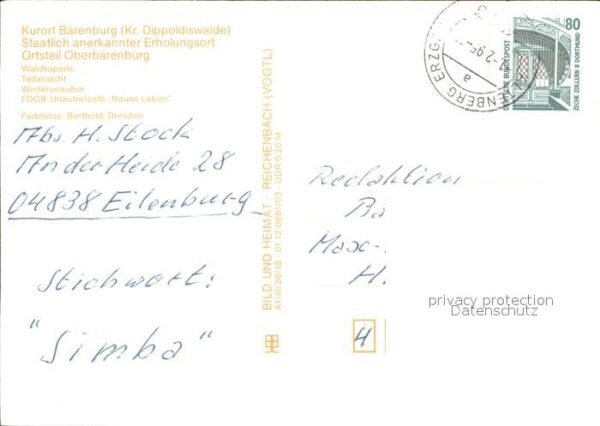 Kurort Bärenburg (Kr. Dippoldiswalde)
Staatlich anerkannter Erholungsort
Ortsteil Oberbärenburg
Waldkapelle
Teilansicht
Winterurlauber
FDGB-Urlaubercafé „Neues Leben"
Farbfotos: Berthold, Dresden
Abs. H. Stock
An der Heide 28
04838 Eilenburg
Stichwort:
"Simba"
BILD UND HEIMAT · REICHENBACH (VOGTL)
A1/III/26/13 01 12 0881/03 · DDR 0,20 M
ENBERG ERZG
a
80
DEUTSCHE BUNDESPOST
ZECHE ZOLLERN II DORTMUND
Redaktion
Ba
Max-
H.
4
privacy protection
Datenschutz